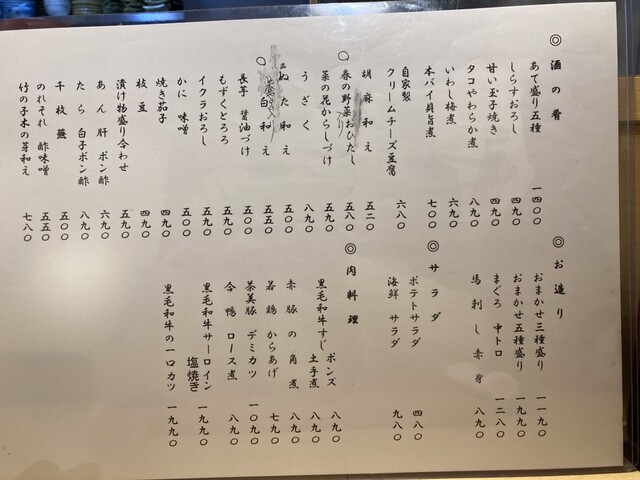 ◎ 酒の肴
あて盛り五種 一四〇〇
しらすおろし 四九〇
甘い玉子焼き 四九〇
タコやわらか煮 八九〇
いわし梅煮 六九〇
本バイ貝旨煮 七〇〇
自家製
クリームチーズ豆腐 六八〇
胡麻和え 五二〇
○ 春の野菜おひたし 五八〇
菜の花からしづけ 五五〇
うざく 八九〇
ぬた和え 五〇〇
○ 白和え 五五〇
長芋 醤油づけ 五九〇
もずくとろろ 五九〇
イクラおろし 五九〇
かに 味噌 五〇〇
焼き茄子 四九〇
枝豆 四九〇
漬け物盛り合わせ 五九〇
あん肝 ポン酢 六九〇
たら 白子ポン酢 八九〇
千枚蕪 五〇〇
のれそれ 酢味噌 五五〇
竹の子木の芽和え 七八〇
◎ お造り
おまかせ三種盛り 一一九〇
おまかせ五種盛り 一九九〇
まぐろ 中トロ 一二八〇
馬刺し赤身 八九〇
◎ サラダ
ポテトサラダ 四八〇
海鮮 サラダ 九八〇
◎ 肉料理
黒毛和牛すじ ポンズ 八九〇
土手煮 八九〇
赤豚の角煮 八九〇
若鶏 からあげ 七九〇
茶美豚 デミカツ 一〇九〇
合鴨 ロース煮 八九〇
黒毛和牛サーロイン 塩焼き 一九九〇
黒毛和牛の一口カツ 一九九〇